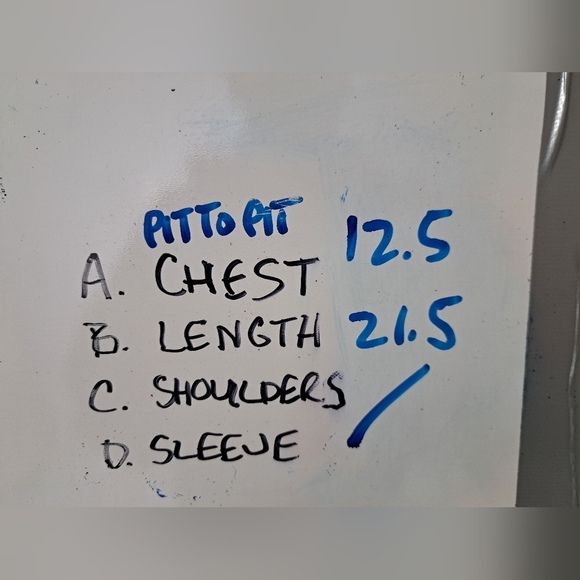 PIT TO PIT
A. CHEST 12.5
B. LENGTH 21.5
C. SHOULDERS /
D. SLEEVE